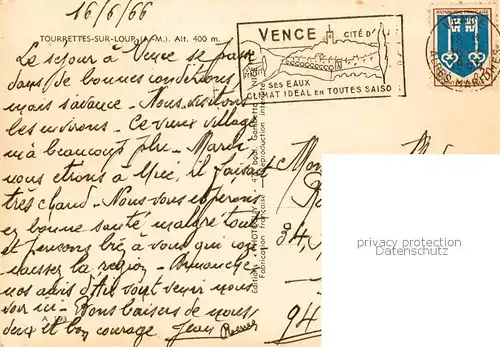 16/6/66
TOURRETTES-SUR-LOUP (A.-M.). Alt. 400 m.
Le séjour à Vence se passe
dans de bonnes conditions
mais s'avance - Nous visitons
les environs - Ce vieux village
m'a beaucoup plu - Mardi
nous étions à Nice, il faisait
très chaud - Nous vous espérons
en bonne santé malgré tout
et pensons bien à vous qui
la région - Dimanche
nos amis d'Aix sont venir nous
voir ici - Bons baisers de nous
deux et bon courage. Jean
VENCE CITÉ D'
SES EAUX
CLIMAT IDÉAL EN TOUTES SAISO
REPUBLIQUE FRANÇAISE
ALPES MARITIMES
Fabrication française - Reproduction interdite
94
privacy protection
Datenschutz